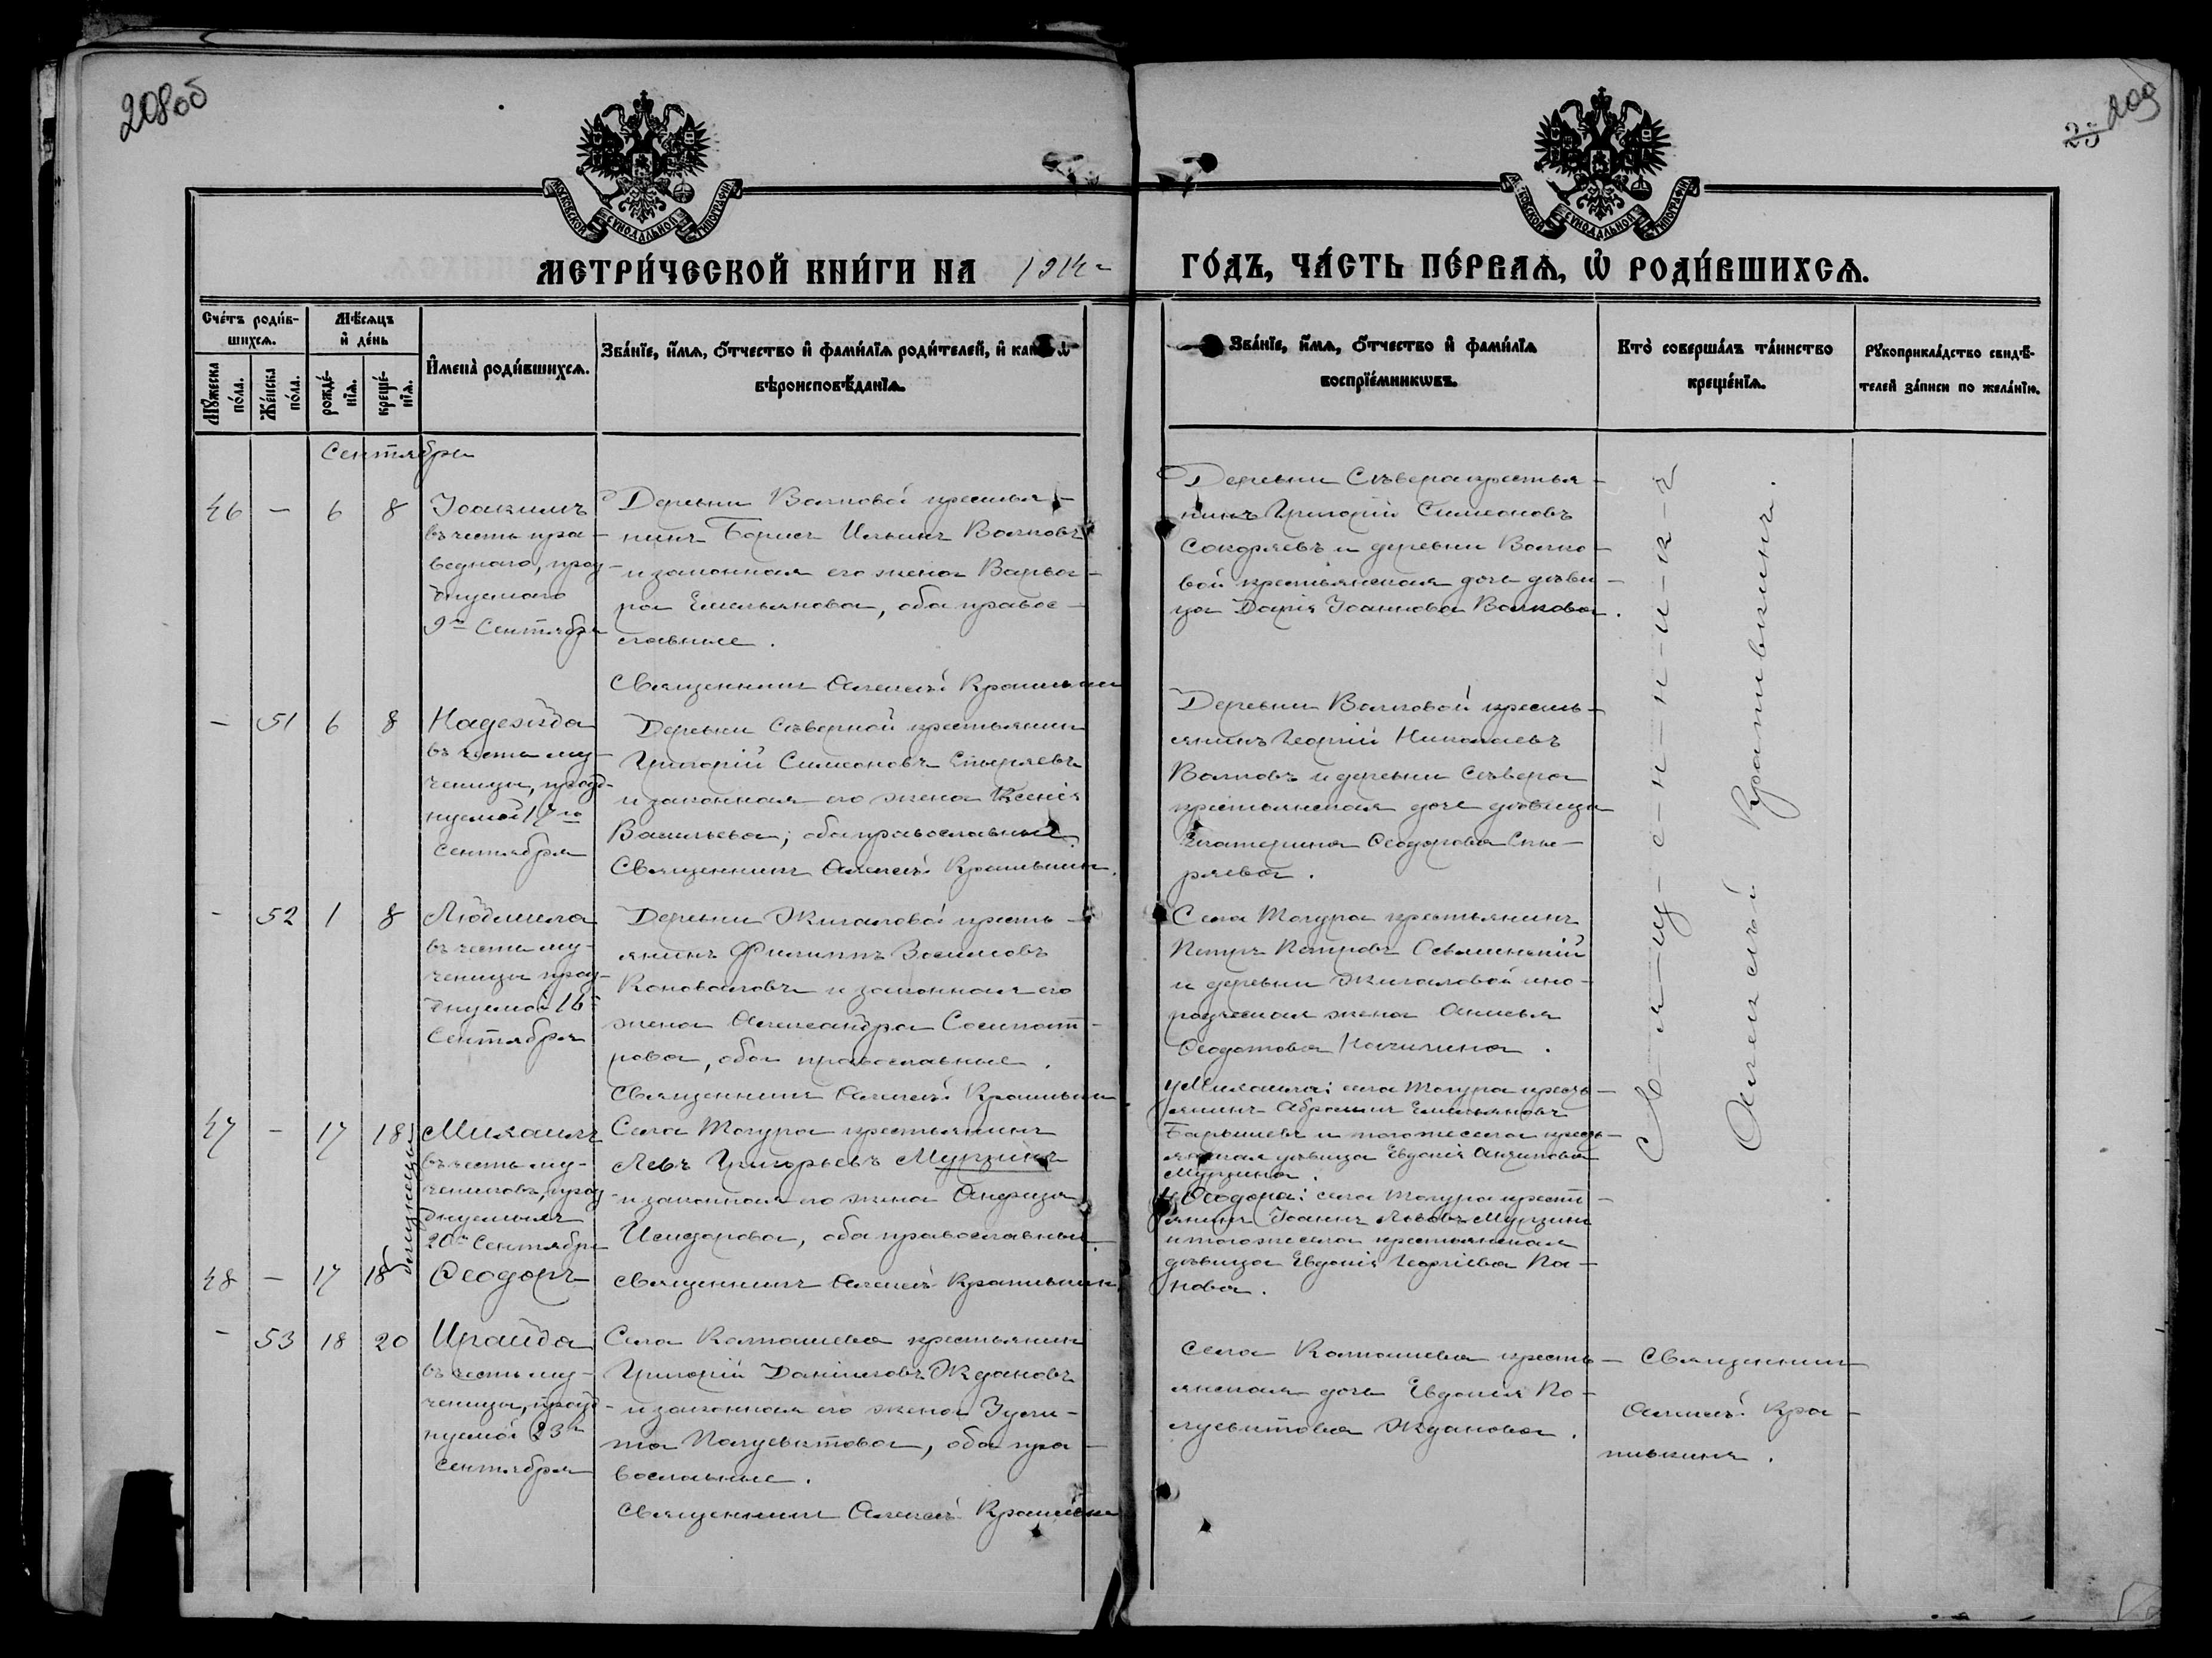 208об
25 209
МОСКОВСКОЙ СѴНОДАЛЬНОЙ ТИПОГРАФІИ
МОСКОВСКОЙ СѴНОДАЛЬНОЙ ТИПОГРАФІИ
МЕТРИ́ЧЕСКОЙ КНИ́ГИ НА 1914 ГО́ДЪ, ЧА́СТЬ ПЕ́РВАѦ, Ѡ҆ РОДИ́ВШИХСѦ.
Сче́тъ роди́в-
шихсѧ.
Мꙋ́жеска по́ла.
Же́нска по́ла.
Мѣ́сѧцъ
и҆ де́нь
рожде́-
нїѧ.
креще́-
нїѧ.
И҆мена̀ роди́вшихсѧ.
Зва́нїе, и҆́мѧ, ѻ҆́тчество и҆ фами́лїѧ роди́телей, и҆ како́гѡ
вѣроисповѣ́данїѧ.
Зва́нїе, и҆́мѧ, ѻ҆́тчество и҆ фами́лїѧ
воспрїе́мникѡвъ.
Кто̀ соверша́лъ та́инство
креще́нїѧ.
Рꙋкоприкла́дство свидѣ́-
телей за́писи по жела́нїю.
Сентябрь
46 — 6 8
Іоакимъ
въ честь пра-
веднаго, празд-
днуемаго
9го Сентября
Деревни Волковой крестья-
нинъ Борисъ Ильинъ Волковъ
и законная его жена Варва-
ра Емельянова, оба право-
славные.
Священникъ Алексѣй Крапивкин
Деревни Сѣвера крестья-
нинъ Григорій Симеоновъ
и деревни Волко-
вой крестьянская дочь дѣви-
ца Дарія Іоаннова Волкова.
— 51 6 8
Надежда
въ честь му-
ченицы, празд-
нуемой 17го
Сентября
Деревни Сѣверной крестьянин
Григорій Симеоновъ Спыряевъ
и законная его жена Ксенія
Васильева, оба православные.
Священникъ Алексѣй Крапивкин.
Деревни Волковой кресть-
янинъ Георгій Николаевъ
Волковъ и деревни Сѣвера
крестьянская дочь дѣвица
Екатерина Ѳеодорова Спы-
ряева.
— 52 1 8
Людмила
въ честь му-
ченицы празд-
днуемой 16
Сентября
Деревни Жигаловой кресть-
янинъ Филиппъ Зосимовъ
Коноваловъ и законная его
жена Александра Сосипат-
рова, оба православные.
Священникъ Алексѣй Крапивкин
Села Тогура крестьянинъ
Петръ Петровъ
и деревни Жигаловой ино-
родческая жена Анисья
Ѳеодотова
47 — 17 18
близнецы
Михаилъ
въ честь му-
чениковъ, празд-
днуемыхъ
20го Сентября
48 — 17 18
Ѳеодоръ
Села Тогура крестьянинъ
Левъ Григорьевъ Мурзинъ
и законная его жена Анфиза
Исидорова, оба православные.
Священникъ Алексѣй Крапивкин
у Михаила: села Тогура кресть-
янинъ Абрамъ Емельяновъ
Барышевъ и того же села кресть-
янская дѣвица Евдокія Антипова
Мурзина.
у Ѳеодора: села Тогура крестья-
янинъ Іоаннъ Львовъ Мурзинъ
и того же села крестьянская
дѣвица Евдокія Георгіева Па-
нова.
— 53 18 20
Ираида
въ честь му-
ченицы, празд-
нуемой 23го
Сентября
Села Колпашева крестьянин
Григорій Даніиловъ Ждановъ
и законная его жена Іули-
та Полуевктова, оба пра-
вославные.
Священникъ Алексѣй Крапивкин
Села Колпашева кресть-
янская дочь Евдокія По-
луевктова Жданова.
С-в-я-щ-е-н-н-и-к-ъ
Алексѣй Крапивкинъ.
Священник
Алексѣй Кра-
пивкинъ.